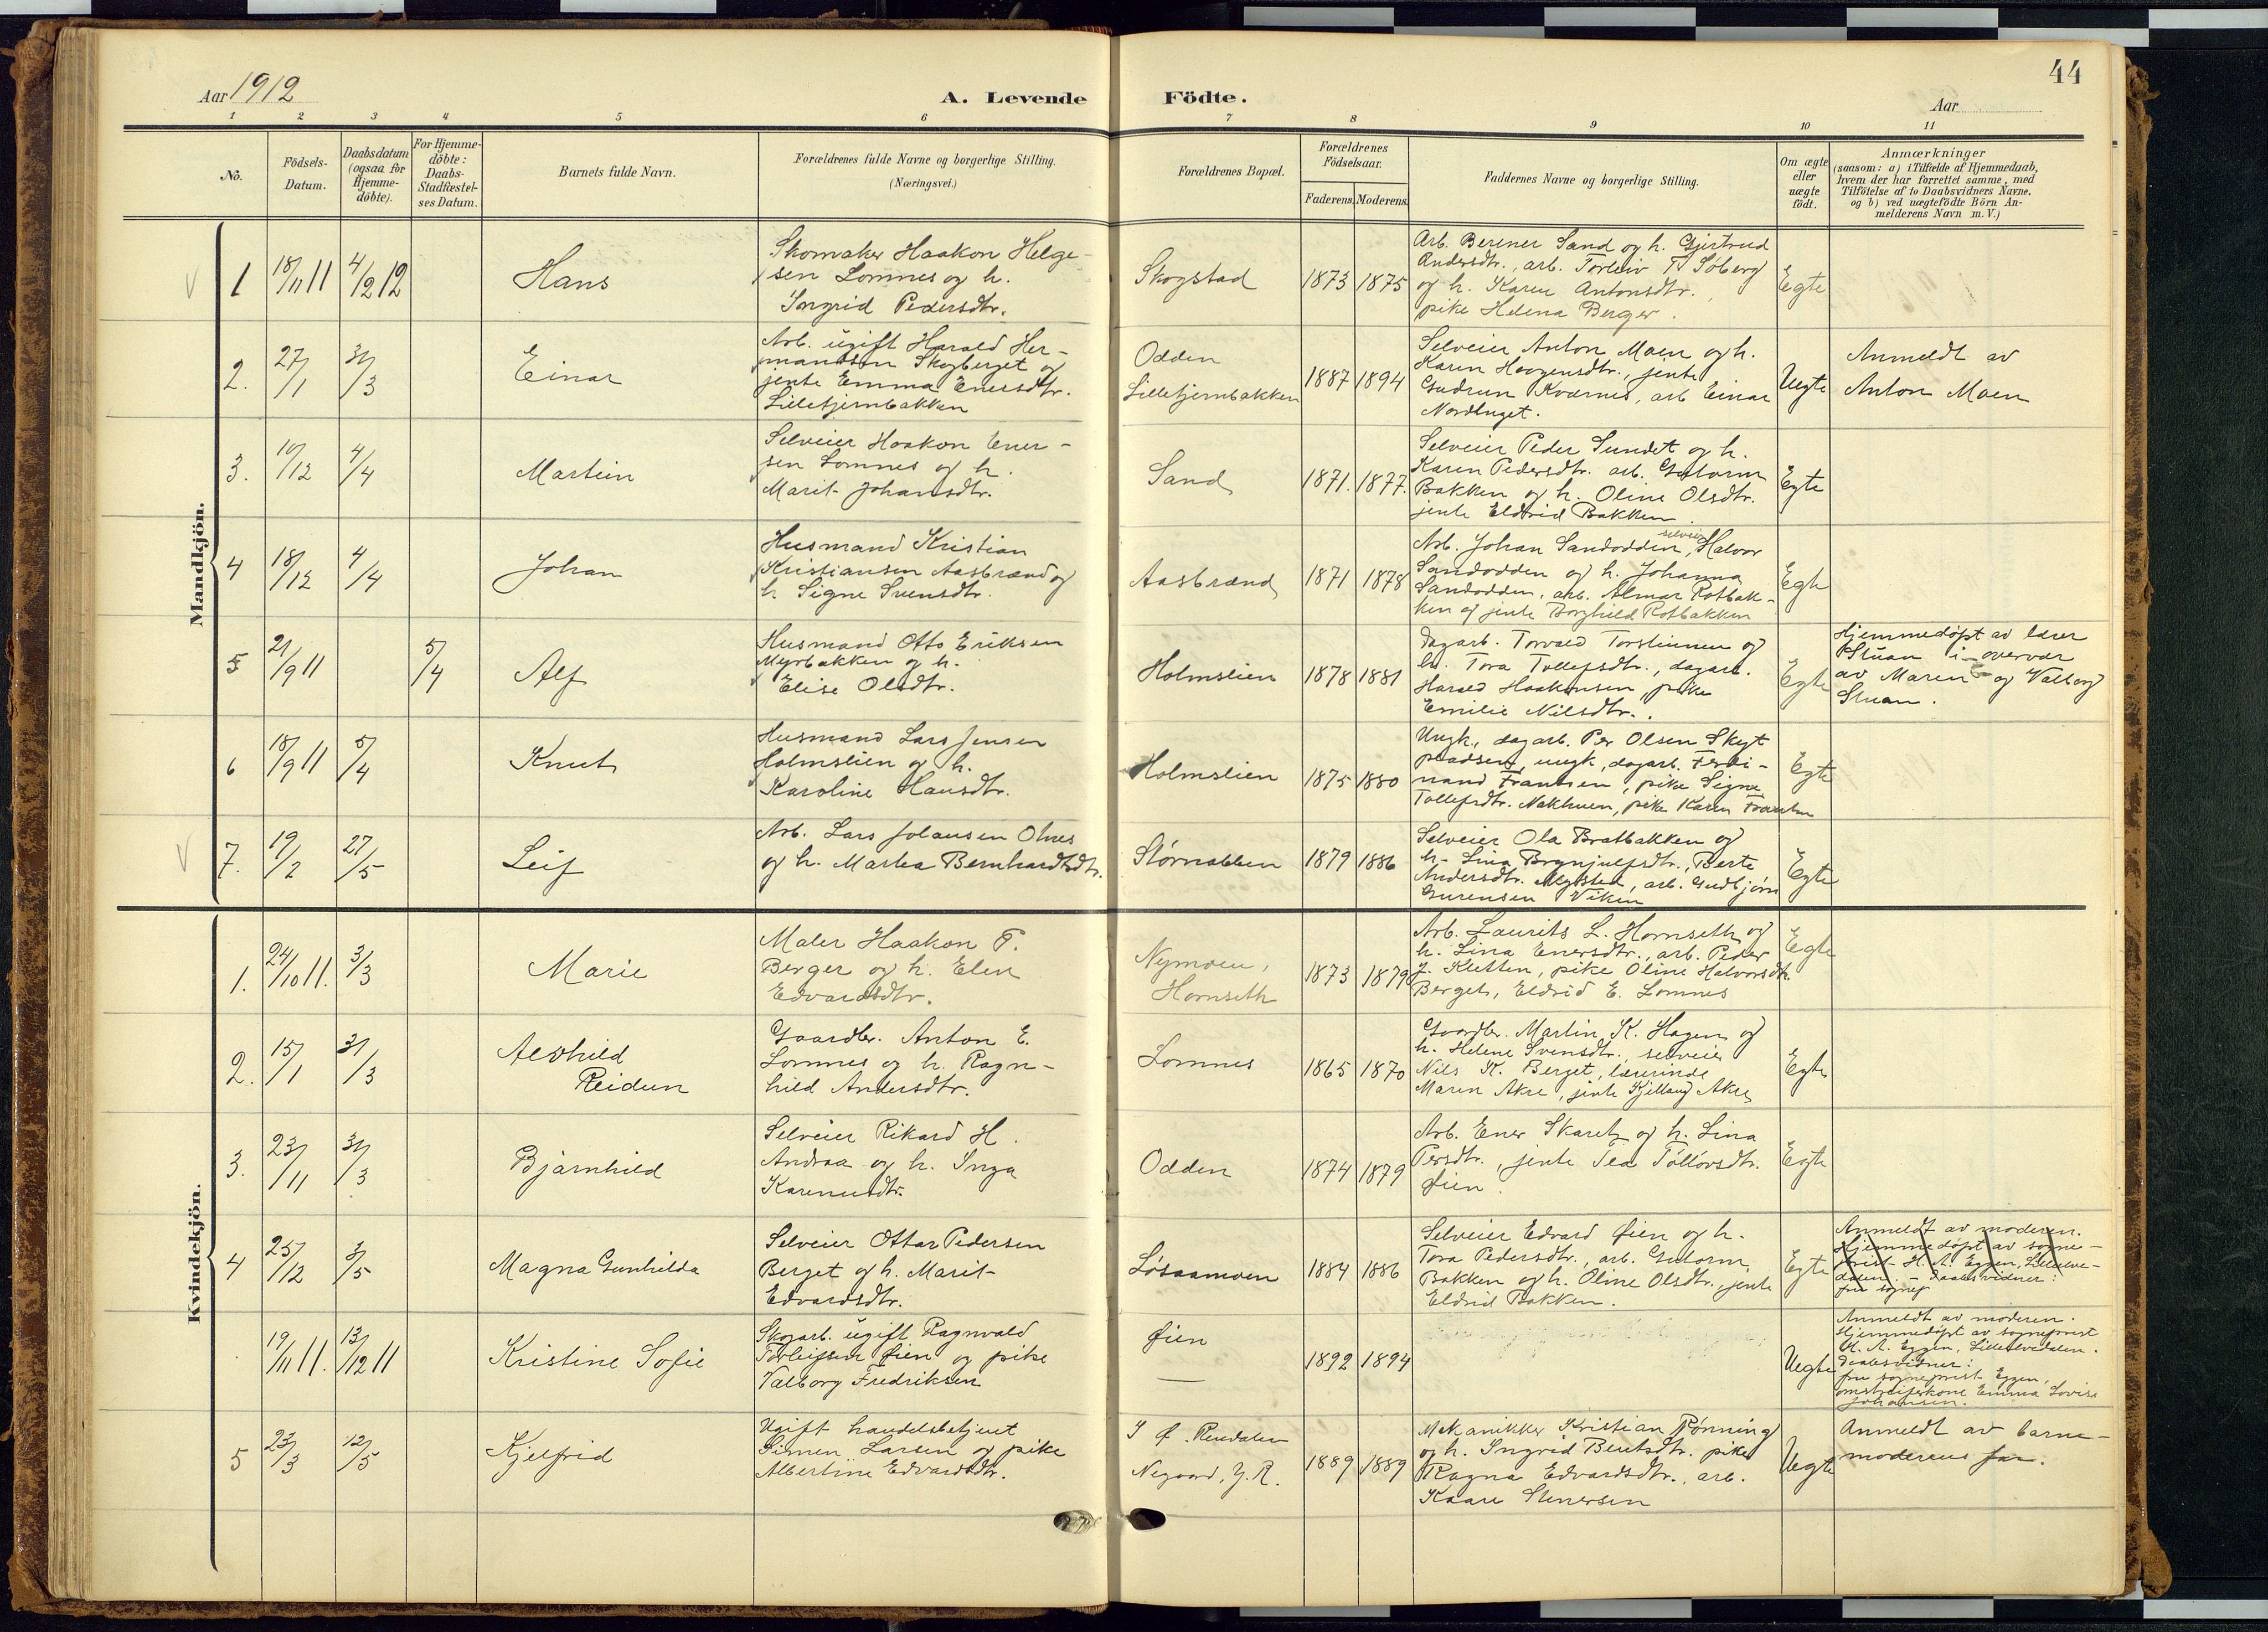 44
Aar 1912
A. Levende Födte.
Aar
1 2 3 4 5 6 7 8 9 10 11
No.
Födsels-Datum.
Daabsdatum (ogsaa for Hjemme-döbte).
For Hjemme-döbte: Daabs-Stadfæstel-ses Datum.
Barnets fulde Navn.
Forældrenes fulde Navne og borgerlige Stilling.
(Næringsvei.)
Forældrenes Bopæl.
Forældrenes Födselsaar.
Faderens. Moderens.
Faddernes Navne og borgerlige Stilling.
Om ægte eller uægte födt.
Anmærkninger
(saasom: a) i Tilfælde af Hjemmedaab,
hvem der har forrettet samme, med
Tilföielse af to Daabsvidners Navne.
og b) ved uægtefödte Börn An-
melderens Navn m. V.)
Mandkjön.
1 18/11 11 4/2 12 Hans
Skomaker Haakon Helge-
sen Lomnes og h.
Ingrid Pedersdtr.
Skogstad 1873 1875
Arb. Berener Sand og h. Gjertrud
Andersdtr., arb. Torleiv T. Söberg
og h. Karen Antonsdtr.,
pike Helena Berger.
Egte
2. 27/1 31/3 Einar
Arb. ugift Harald Her-
mansen Skogberget og
jente Emma Enersdtr.
Lilletjernbakken
Odden
Lilletjernbakken
1887 1894
Selveier Anton Moen og h.
Karen Haagensdtr., jente
Gudrun Kværnes, arb Einar
Nordhaget.
Uegte
Anmeldt av
Anton Moen
3. 10/12 4/4 Martin
Selveier Haakon Ener-
sen Lomnes og h.
Marit Johansdtr.
Sand 1871. 1877.
Selveier Peder Sundet og h.
Karen Pedersdtr. arb. Gutorm
Bakken og h. Oline Olsdtr.
jente Eldrid Bakken
Egte
4 18/12 4/4 Johan
Husmand Kristian
Kristiansen Aasbrænd og
h. Signe Svensdtr.
Aasbrænd 1871 1878
Arb. Johan Sandodden, selveier Halvor
Sandodden og h. Johanna
Sandodden, arb. Almar Rotbak-
ken og jente Borghild Rotbakken
Egte
5 21/9 11 5/4 Alf
Husmand Otto Eriksen
Myrbakken og h.
Elise Olsdtr.
Holmslien 1878 1881
Dagarb. Torvald Torstinnen og
h. Tora Tollefsdtr., dagarb.
Harald Haakonsen, pike
Emilie Nilsdtr.
Egte
Hjemmedøpt av lærer
Stuan i overvær
av Maren og Valborg
Stuan.
6 18/9 11 5/4 Knut
Husmand Lars Jensen
Holmslien og h.
Karoline Hansdtr.
Holmslien 1875 1880
Ungk., dagarb. Per Olsen Skyt
pladsen, ungk, dagarb. Ferdi-
nand Frantsen, pike Signe
Tollefsdtr. Nakhuen, pike Karen Frantsen
Egte
7. 19/2 27/5 Leif
Arb. Lars Johansen Olnes
og h. Martea Bernhardtsdtr.
Störnabben 1879 1886
Selveier Ola Bratbakken og
h. Lina Brynjulfsdtr., Berte
Andersdtr. Mysted, arb. Gudbjörn
Gurensen Viken
Egte
Kvindekjön.
1. 24/10 11. 3/3 Marie
Maler Haakon T.
Berger og h. Elen
Edvardsdtr.
Nymoen,
Hornseth
1873 1879
Arb. Laurits L. Hornseth og
h. Lina Enersdtr., arb. Peder
J. Kletten, pike Oline Halvorsdtr.
Berget, Eldrid E. Lomnes
Egte
2. 15/1 31/3 Alvhild
Reidun
Gaardbr. Anton E.
Lomnes og h. Ragn-
hild Andersdtr.
Lomnes 1865 1870
Gaardbr. Martin K. Hagen og
h. Helene Svensdtr., selveier
Nils K. Berget, lærerinde
Maren Akre, jente Kjellaug Akre
Egte
3. 23/11 31/3 Bjarnhild
Selveier Rikard H.
Andraa og h. Inga
Karenusdtr.
Odden 1874 1879
Arb. Ener Skaret og h. Lina
Persdtr., jente Tea Tollövsdtr.
Øien.
Egte
4 25/12 3/5 Magna Gunhilda
Selveier Ottar Pedersen
Berget og h. Marit
Edvardsdtr.
Løsaamoen 1884 1886
Selveier Edvard Øien og h.
Tora Pedersdtr., arb. Gutorm
Bakken og h. Oline Olsdtr., jente
Eldrid Bakken.
Egte
Anmeldt av moderen.
Hjemmedøpt av sogne-
prest H. A. Eggen, Lilleelve-
dalen. - Daabsvidner:
fru sognep
19/11 11. 13/12 11 Kristine Sofie
Skogarb. ugift Ragnvald
Torleifsen Øien og pike
Valborg Fredriksen
Øien
—
1892 1894
Uegte
Anmeldt av moderen.
Hjemmedøpt av sogneprest
H. A. Eggen, Lilleelvedalen.
Daabsvidner:
fru sogneprest Eggen,
omstreiferkone Emma Lovise
Johansen.
5 23/3 12/5 Kjelfrid
Ugift handelsbetjent
Simen Larsen og pike
Albertine Edvardsdtr.
I Ø. Rendalen
Negaard, Y. R.
1889 1889
Mekanikker Kristian Rønning
og h. Ingrid Berntsdtr. pike
Ragna Edvardsdtr., arb.
Kaare Stenersen
Uegte
Anmeldt av barne-
moderens far.